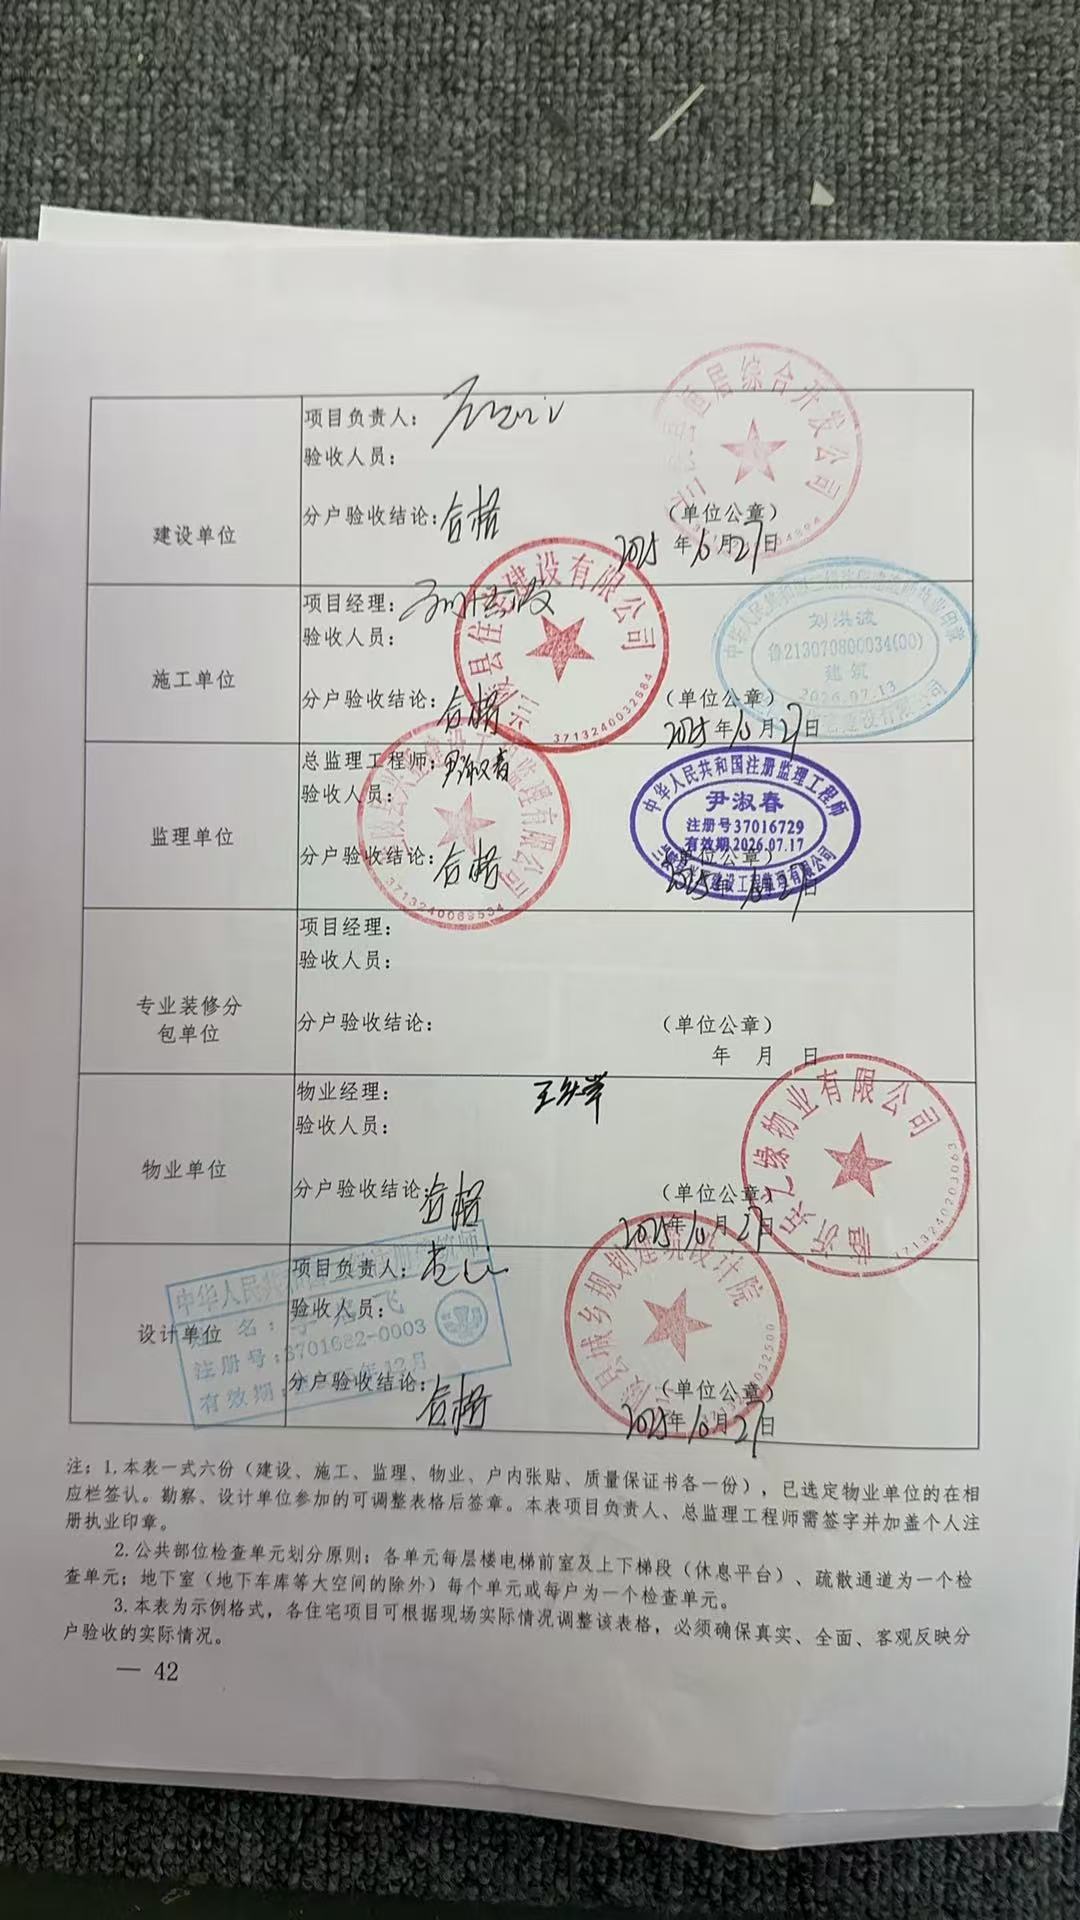 居综合开发公司
项目负责人：
验收人员：
建设单位
分户验收结论：合格
（单位公章）
2025年10月27日
县住 建设有限公司
3713240032684
项目经理：
验收人员：
施工单位
分户验收结论：合格
（单位公章）
2025年10月27日
刘洪波
鲁213070800034(00)
建筑
2026.07.13
总监理工程师：尹淑春
验收人员：
监理单位
分户验收结论：合格
（单位公章）
2025年10月27日
监理有限公司
3713240069534
中华人民共和国注册监理工程师
尹淑春
注册号37016729
有效期2026.07.17
建设工程监理有限公司
项目经理：
验收人员：
专业装修分
包单位
分户验收结论：
（单位公章）
年 月 日
物业经理：
验收人员：
物业单位
分户验收结论：合格
（单位公章）
2025年10月27日
临沂汇缘物业有限公司
3713240203063
项目负责人：
验收人员：
设计单位
分户验收结论：合格
（单位公章）
2025年10月27日
县城乡规划建筑设计院
中华人民共
名： 飞
注册号：3701682-0003
有效期： 年12月
注：1.本表一式六份（建设、施工、监理、物业、户内张贴、质量保证书各一份），已选定物业单位的在相
应栏签认。勘察、设计单位参加的可调整表格后签章。本表项目负责人、总监理工程师需签字并加盖个人注
册执业印章。
2.公共部位检查单元划分原则：各单元每层楼电梯前室及上下梯段（休息平台）、疏散通道为一个检
查单元；地下室（地下车库等大空间的除外）每个单元或每户为一个检查单元。
3.本表为示例格式，各住宅项目可根据现场实际情况调整该表格，必须确保真实、全面、客观反映分
户验收的实际情况。
— 42